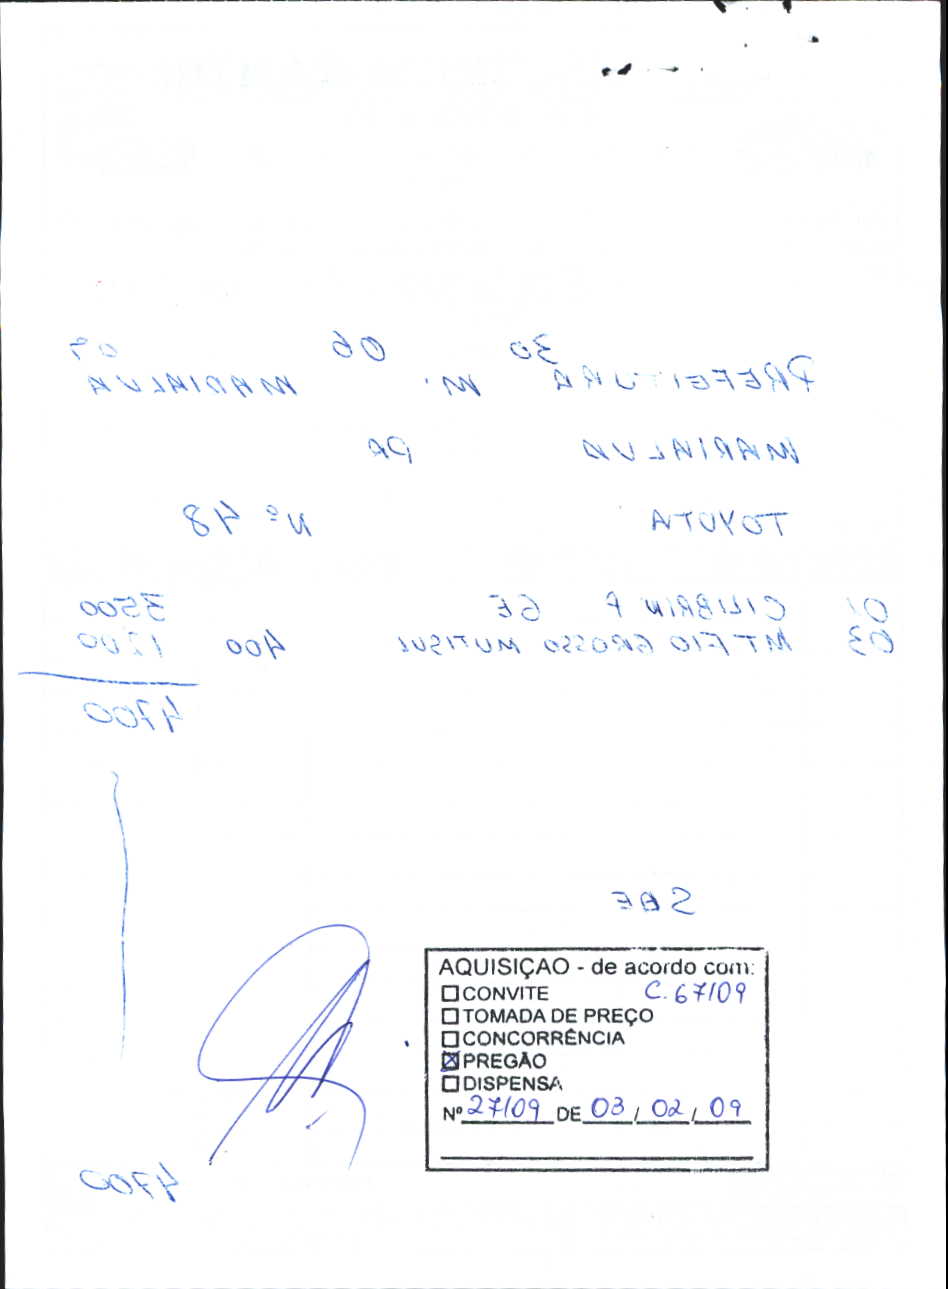 30 06 09
PREFEITURA M. MARIALVA
MARIALVA PR
TOYOTA Nº 48
01 CILIBRIM P GE 3500
03 MT FIO GROSSO MUTISUL 400 1200
4700
SBE
AQUISIÇAO - de acordo com:
☐ CONVITE C. 67/09
☐ TOMADA DE PREÇO
☐ CONCORRÊNCIA
☒ PREGÃO
☐ DISPENSA
Nº 27/09 DE 03 / 02 / 09
4700